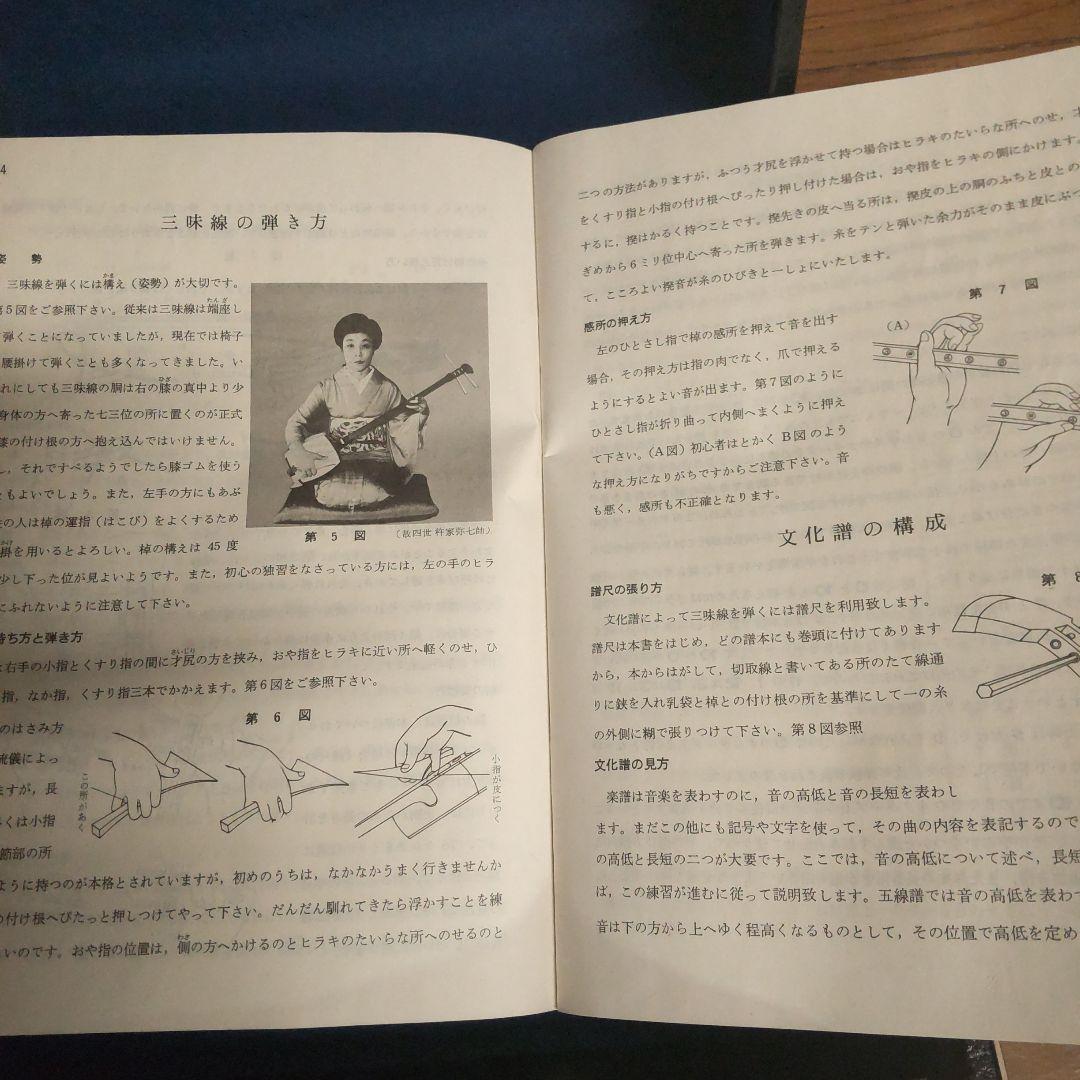 4
三味線の弾き方
姿勢
三味線を弾くには構え（姿勢）が大切です。
第5図をご参照下さい。従来は三味線は端座し
弾くことになっていましたが，現在では椅子
腰掛けて弾くことも多くなってきました。い
れにしても三味線の胴は右の膝の真中より少
身体の方へ寄った七三位の所に置くのが正式
膝の付け根の方へ抱え込んではいけません。
し，それですべるようでしたら膝ゴムを使う
ともよいでしょう。また，左手の方にもあぶ
の人は棹の運指（はこび）をよくするため
掛を用いるとよろしい。棹の構えは45度
少し下った位が見よいようです。また，初心の独習をなさっている方には，左の手のヒラ
にふれないように注意して下さい。
第5図
（故四世 杵家弥七師）
持ち方と弾き方
は右手の小指とくすり指の間に才尻の方を挟み，おや指をヒラキに近い所へ軽くのせ，ひ
指，なか指，くすり指三本でかかえます。第6図をご参照下さい。
第6図
のはさみ方
流儀によっ
ますが，長
くは小指
節部の所
この所があく
小指が皮につく
ように持つのが本格とされていますが，初めのうちは，なかなかうまく行きませんか
の付け根へぴたっと押しつけてやって下さい。だんだん馴れてきたら浮かすことを練
いのです。おや指の位置は，側の方へかけるのとヒラキのたいらな所へのせるのと
二つの方法がありますが，ふつう才尻を浮かせて持つ場合はヒラキのたいらな所へのせ，才
をくすり指と小指の付け根へぴったり押し付けた場合は，おや指をヒラキの側にかけます。
するに，撥はかるく持つことです。撥先きの皮へ当る所は，撥皮の上の胴のふちと皮との
ぎめから6ミリ位中心へ寄った所を弾きます。糸をテンと弾いた余力がそのまま皮にぶつ
て，こころよい撥音が糸のひびきと一しょにいたします。
感所の押え方
左のひとさし指で棹の感所を押えて音を出す
場合，その押え方は指の肉でなく，爪で押える
ようにするとよい音が出ます。第7図のように
ひとさし指が折り曲って内側へまくように押え
て下さい。（A図）初心者はとかくB図のよう
な押え方になりがちですからご注意下さい。音
も悪く，感所も不正確となります。
第7図
（A）
文化譜の構成
譜尺の張り方
文化譜によって三味線を弾くには譜尺を利用致します。
譜尺は本書をはじめ，どの譜本にも巻頭に付けてあります
から，本からはがして，切取線と書いてある所のたて線通
りに鋏を入れ乳袋と棹との付け根の所を基準にして一の糸
の外側に糊で張りつけて下さい。第8図参照
第8
文化譜の見方
楽譜は音楽を表わすのに，音の高低と音の長短を表わし
ます。まだこの他にも記号や文字を使って，その曲の内容を表記するので
の高低と長短の二つが大要です。ここでは，音の高低について述べ，長短
ば，この練習が進むに従って説明致します。五線譜では音の高低を表わす
音は下の方から上へゆく程高くなるものとして，その位置で高低を定め